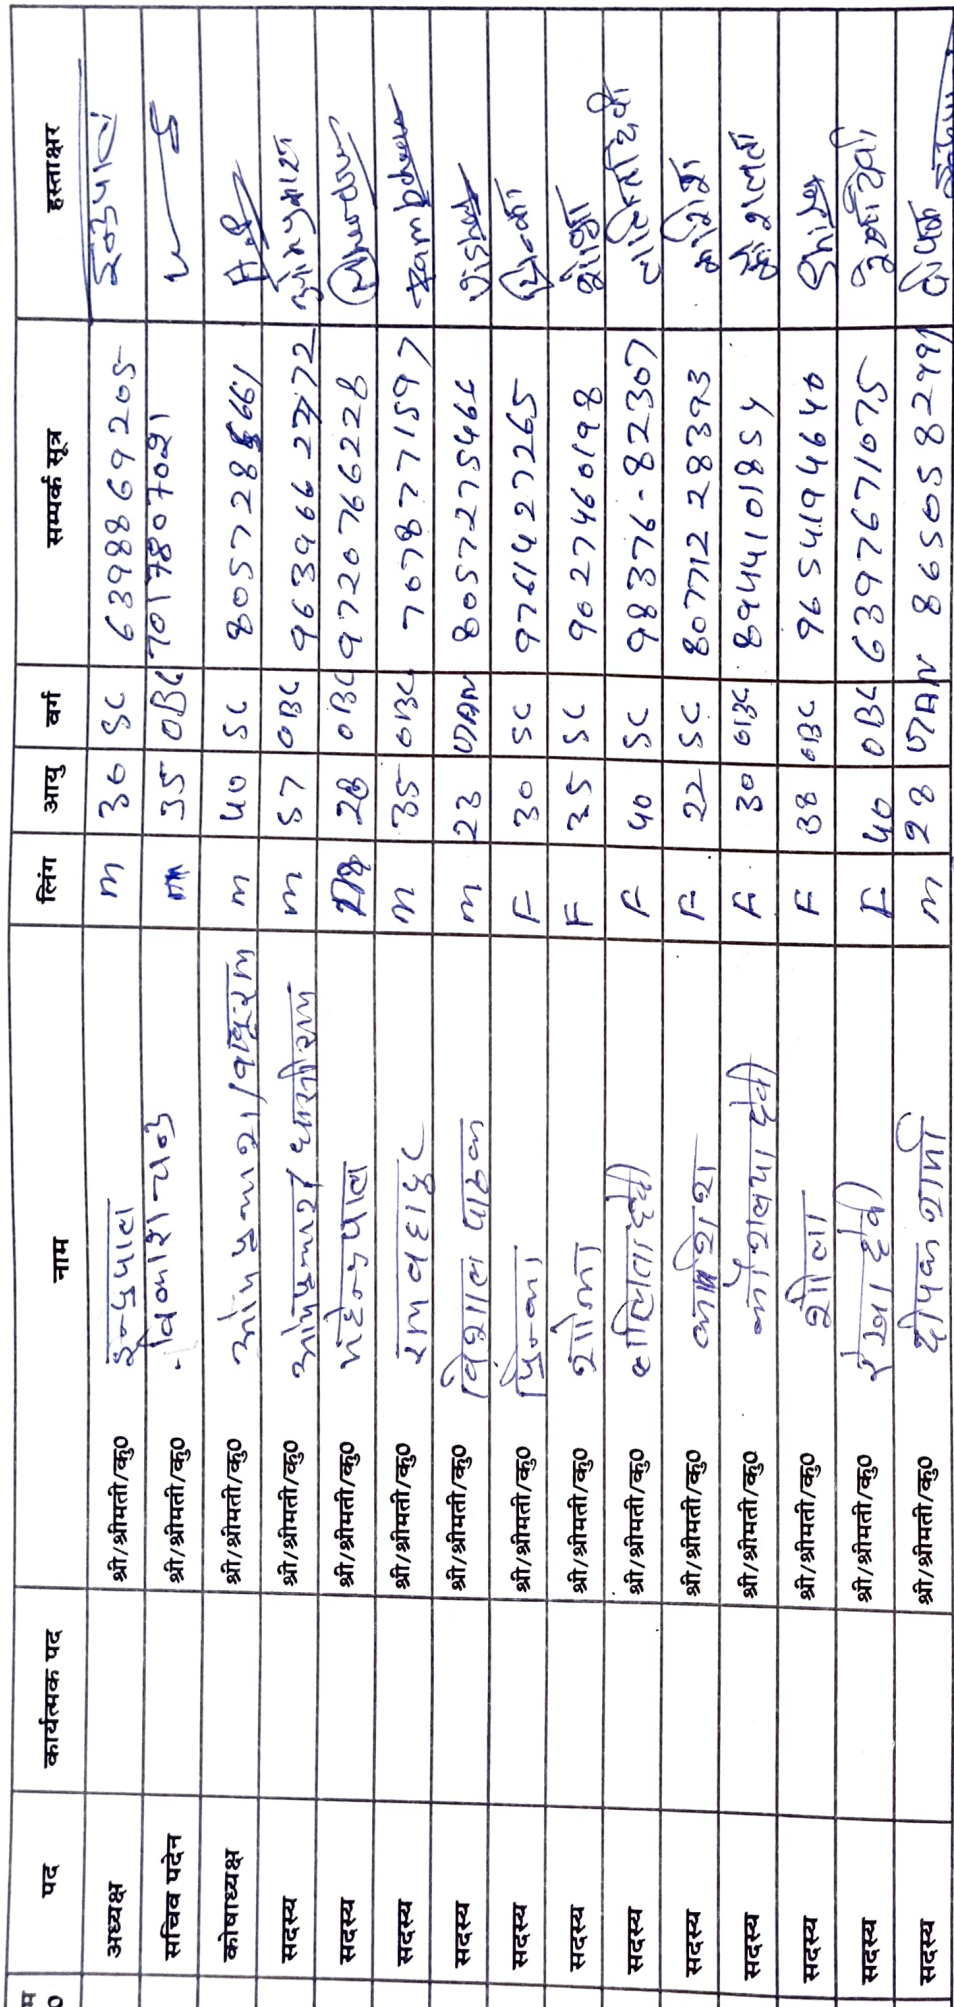 म पद कार्यत्मक पद नाम लिंग आयु वर्ग सम्पर्क सूत्र हस्ताक्षर
०
अध्यक्ष श्री/श्रीमती/कु0 इन्द्रपाल M 30 SC 6398869205
सचिव पदेन श्री/श्रीमती/कु0 विकाश चन्द्र M 35 OBC 7017807021
कोषाध्यक्ष श्री/श्रीमती/कु0 ओम प्रकाश M 40 SC
सदस्य श्री/श्रीमती/कु0 ओमप्रकाश/ घासीराम M 57 OBC ओमप्रकाश
सदस्य श्री/श्रीमती/कु0 महेन्द्रपाल 28 OBC 9720766228
सदस्य श्री/श्रीमती/कु0 रामबहादुर M 35 OBC 7078771597
सदस्य श्री/श्रीमती/कु0 विशाल पाठक M 23 GAN 8057275466 Vishal
सदस्य श्री/श्रीमती/कु0 प्रिन्का F 30 SC 9761427265 प्रिन्का
सदस्य श्री/श्रीमती/कु0 F 35 SC 9027460198
सदस्य श्री/श्रीमती/कु0 ललिता देवी F 40 SC 98376-82307
सदस्य श्री/श्रीमती/कु0 F 22 SC 80771228393
सदस्य श्री/श्रीमती/कु0 कौशल्या देवी F 30 OBC 8944101854
सदस्य श्री/श्रीमती/कु0 शीला F 38 OBC 9654194640
सदस्य श्री/श्रीमती/कु0 रेखा देवी F 40 OBC 6397671075
सदस्य श्री/श्रीमती/कु0 दीपक शर्मा M 28 GAN दीपक